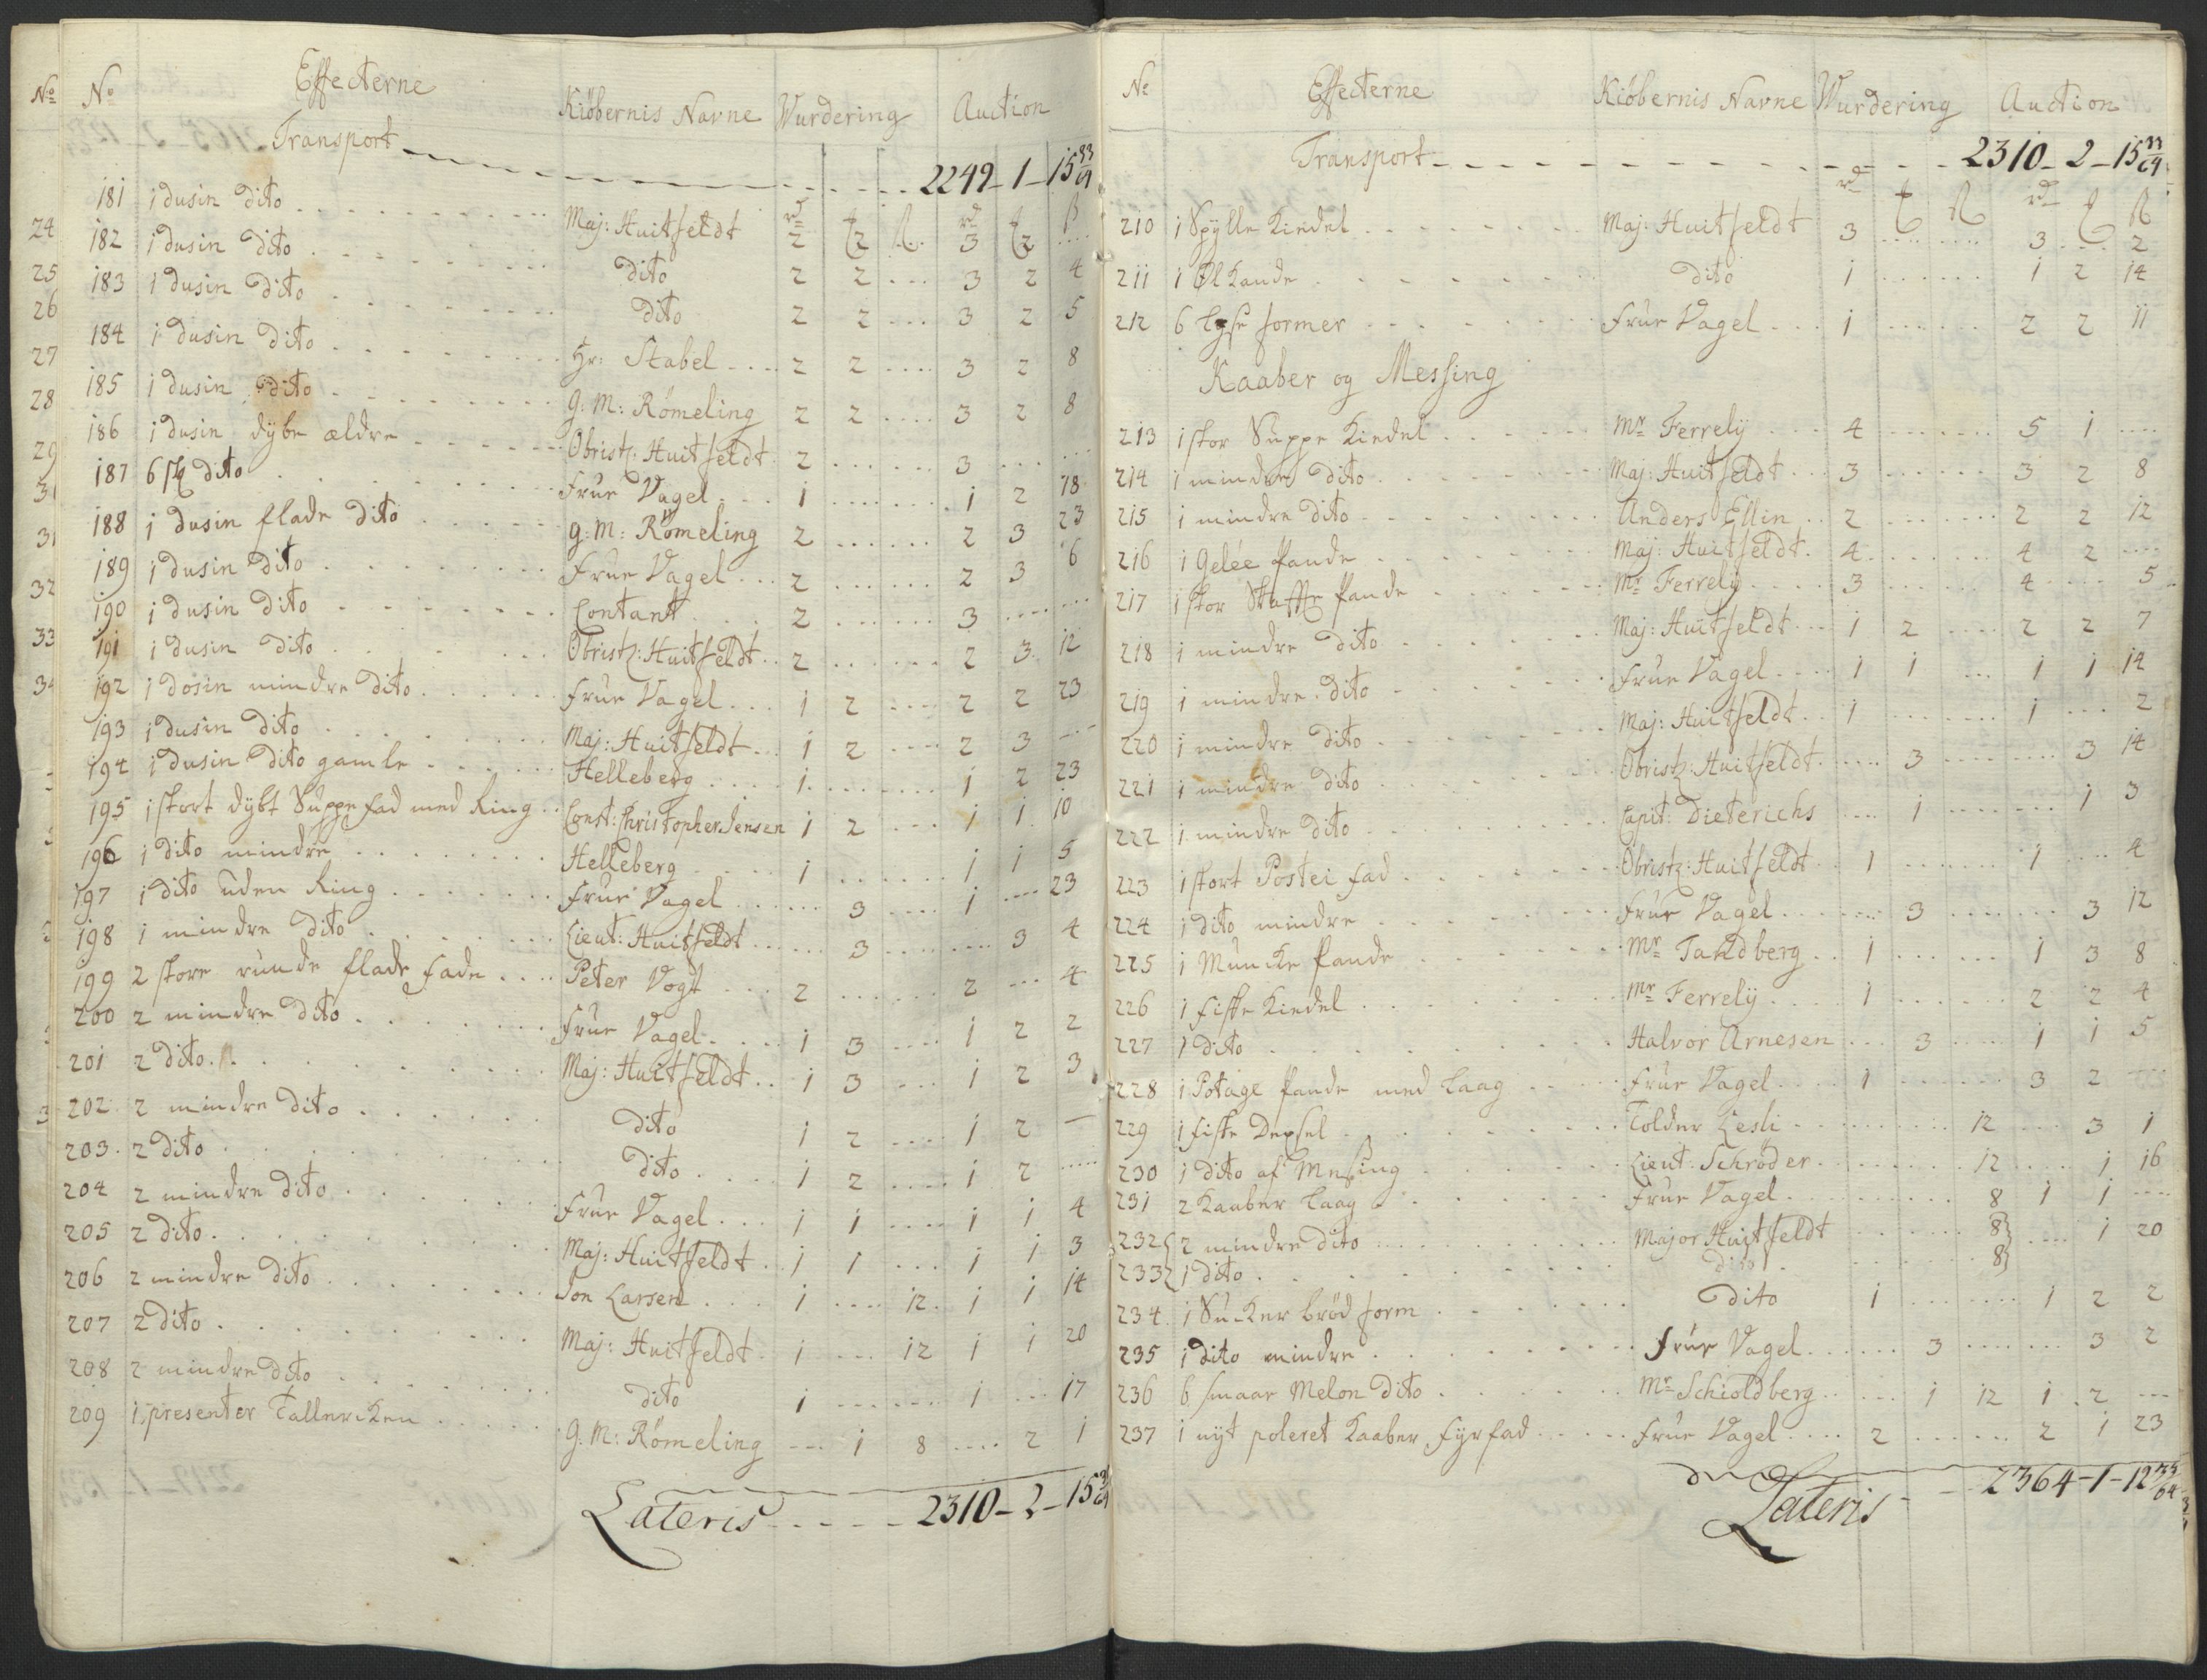 No
24
25
26
27
28
29
31
31
32
33
No Effecterne Kiöbernis Navne Wurdering Auction
Transport 2249 - 1 - 15 33/64
rd ß rd ß
181 1 dusin dito Maj: Huitfeldt 2 2 .. 3 2 ....
182 1 dusin dito dito 2 2 ... 3 2 4
183 1 dusin dito dito 2 2 ... 3 2 5
184 1 dusin dito Hr: Stabel 2 2 .... 3 2 8
185 1 dusin dito G: M: Römeling 2 2 .... 3 2 8
186 1 dusin dybe ældre Obristl: Huitfeldt 2 ...... 3 ... ...
187 6 stk dito Frue Vagel 1 ....... 1 2 18
188 1 dusin flade dito G: M: Römeling 2 ...... 2 3 23
189 1 dusin dito Frue Vagel 2 ...... 2 3 6
190 1 dusin dito Contant 2 ...... 3 .... ...
191 1 dusin dito Obristl: Huitfeldt 2 ...... 2 3 12
192 1 dosin mindre dito Frue Vagel 1 2 .... 2 2 23
193 1 dusin dito Maj: Huitfeldt 1 2 .... 2 3 ...
194 1 dusin dito gamle Helleberg 1 ....... 1 2 23
195 1 stort dybt Suppe fad med Ring Const: Christopher Jensen 1 2 ... 1 1 10
196 1 dito mindre Helleberg 1 ...... 1 1 5
197 1 dito uden Ring Frue Vagel ... 3 .... 1 .... 23
198 1 mindre dito Lieut: Huitfeldt ... 3 ........ 3 4
199 2 store runde flade Fade Peter Vogt 2 ...... 2 ... 4
200 2 mindre dito Frue Vagel 1 3 .... 1 2 2
201 2 dito Maj: Huitfeldt 1 3 ... 1 2 3
202 2 mindre dito dito 1 2 .... 1 2 —
203 2 dito dito 1 2 .... 1 2 .....
204 2 mindre dito Frue Vagel 1 1 .... 1 1 4
205 2 dito Maj: Huitfeldt 1 1 ... 1 1 3
206 2 mindre dito Jon Larsen 1 .... 12 1 1 14
207 2 dito Maj: Huitfeldt 1 .... 12 1 1 20
208 2 mindre dito dito 1 ...... 1 ... 17
209 1 presenter Tallercken G: M: Römeling ... 1 8 .... 2 1
Lateris 2310 - 2 - 15 33/64
No Effecterne Kiöbernis Navne Wurdering Auction
Transport 2310 - 2 - 15 33/64
rd ß rd ß
210 1 Spylle Kiedel Maj: Huitfeldt 3 ........ 3 ... 2
211 1 Øl Kande dito 1 ...... 1 2 14
212 6 Lyse former Frue Vagel 1 ...... 2 2 11
Kaaber og Messing
213 1 stor Suppe Kiedel Mr Ferrely 4 ...... 5 1 ....
214 1 mindre dito Maj: Huitfeldt 3 ...... 3 2 8
215 1 mindre dito Anders Ellin 2 ...... 2 2 12
216 1 Gelée Pande Maj: Huitfeldt 4 ...... 4 2 ....
217 1 stor Pande Mr Ferrely 3 ...... 4 .... 5
218 1 mindre dito Maj: Huitfeldt 1 2 .... 2 2 7
219 1 mindre dito Frue Vagel 1 1 ... 1 1 14
220 1 mindre dito Maj: Huitfeldt 1 ...... 1 ... 2
221 1 mindre dito Obristl: Huitfeldt ... 3 ....... 3 14
222 1 mindre dito Capit: Dieterichs ... 1 ....... 1 3
223 1 stort Postei fad Obristl: Huitfeldt 1 ...... 1 ... 4
224 1 dito mindre Frue Vagel ... 3 ...... 3 12
225 1 Muncke Pande Mr Tandberg 1 ...... 1 3 8
226 1 fiske Kiedel Mr Ferrely 1 ...... 2 2 4
227 1 dito Halvor Arnesen ... 3 .... 1 1 5
228 1 Potage Pande med Laag Frue Vagel 1 ...... 3 2 ....
229 1 fiske Depsel Tolder Lesli ........ 12 ... 3 1
230 1 dito af Messing Lieut: Schröder ........ 12 .... 1 16
231 2 Kaaber Laag Frue Vagel ........ 8 1 1 ....
232 2 mindre dito Major Huitfeldt ...... 8 .... 1 20
233 1 dito dito ...... 8
234 1 Sucker brød form dito 1 ...... 1 2 2
235 1 dito mindre Frue Vagel ... 3 ...... 3 2
236 6 smaae Melon dito Mr Schioldberg ... 1 12 1 2 ...
237 1 nyt poleret Kaaber Fyrfad Frue Vagel 2 ...... 2 1 23
Lateris 2364 - 1 - 12 33/64